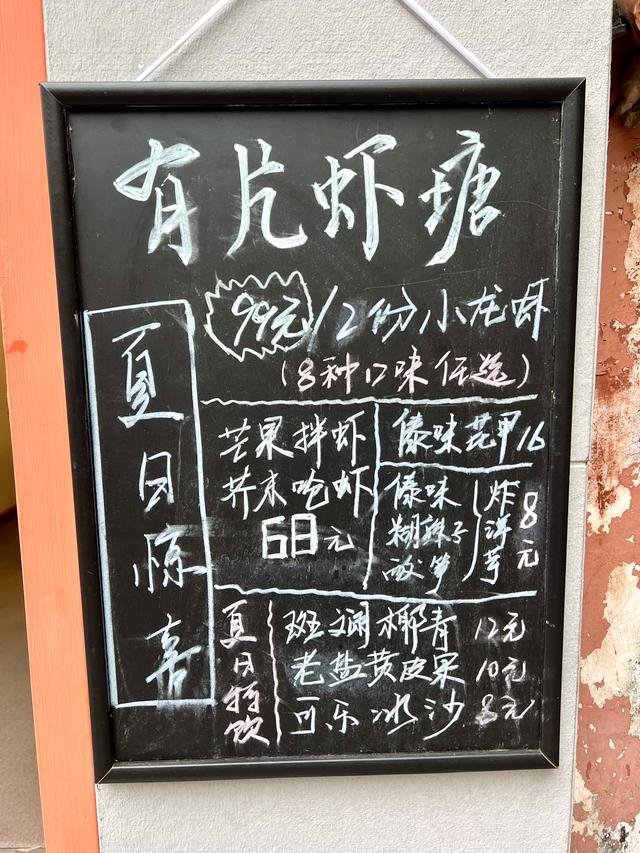 有片虾塘
99元/2份小龙虾
(8种口味任选)
夏日惊喜
芒果拌虾
芥末呛虾
68元
傣味花甲16
傣味
糊辣子
酸笋
炸洋芋
8元
夏日特饮
斑斓椰青 12元
老盐黄皮果 10元
可乐冰沙 8元